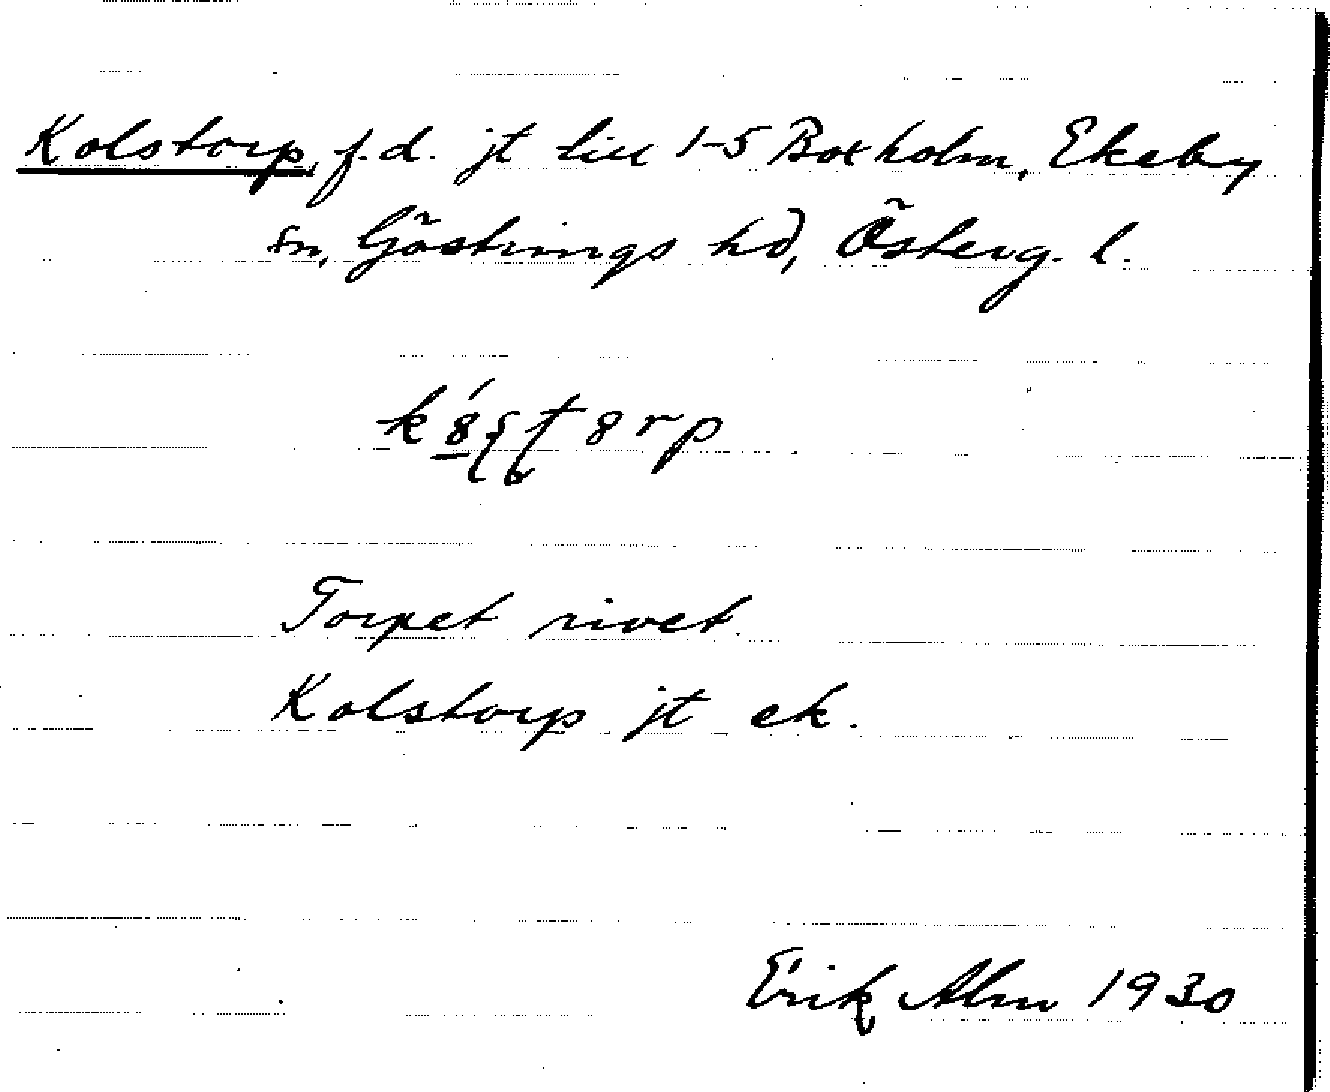 Kolstorp, f.d. jt till 1-5 Boxholm, Ekeby
sn, Göstrings hd, Österg. l.
Torpet rivet.
Kolstorp jt ek.
Erik Alm 1930